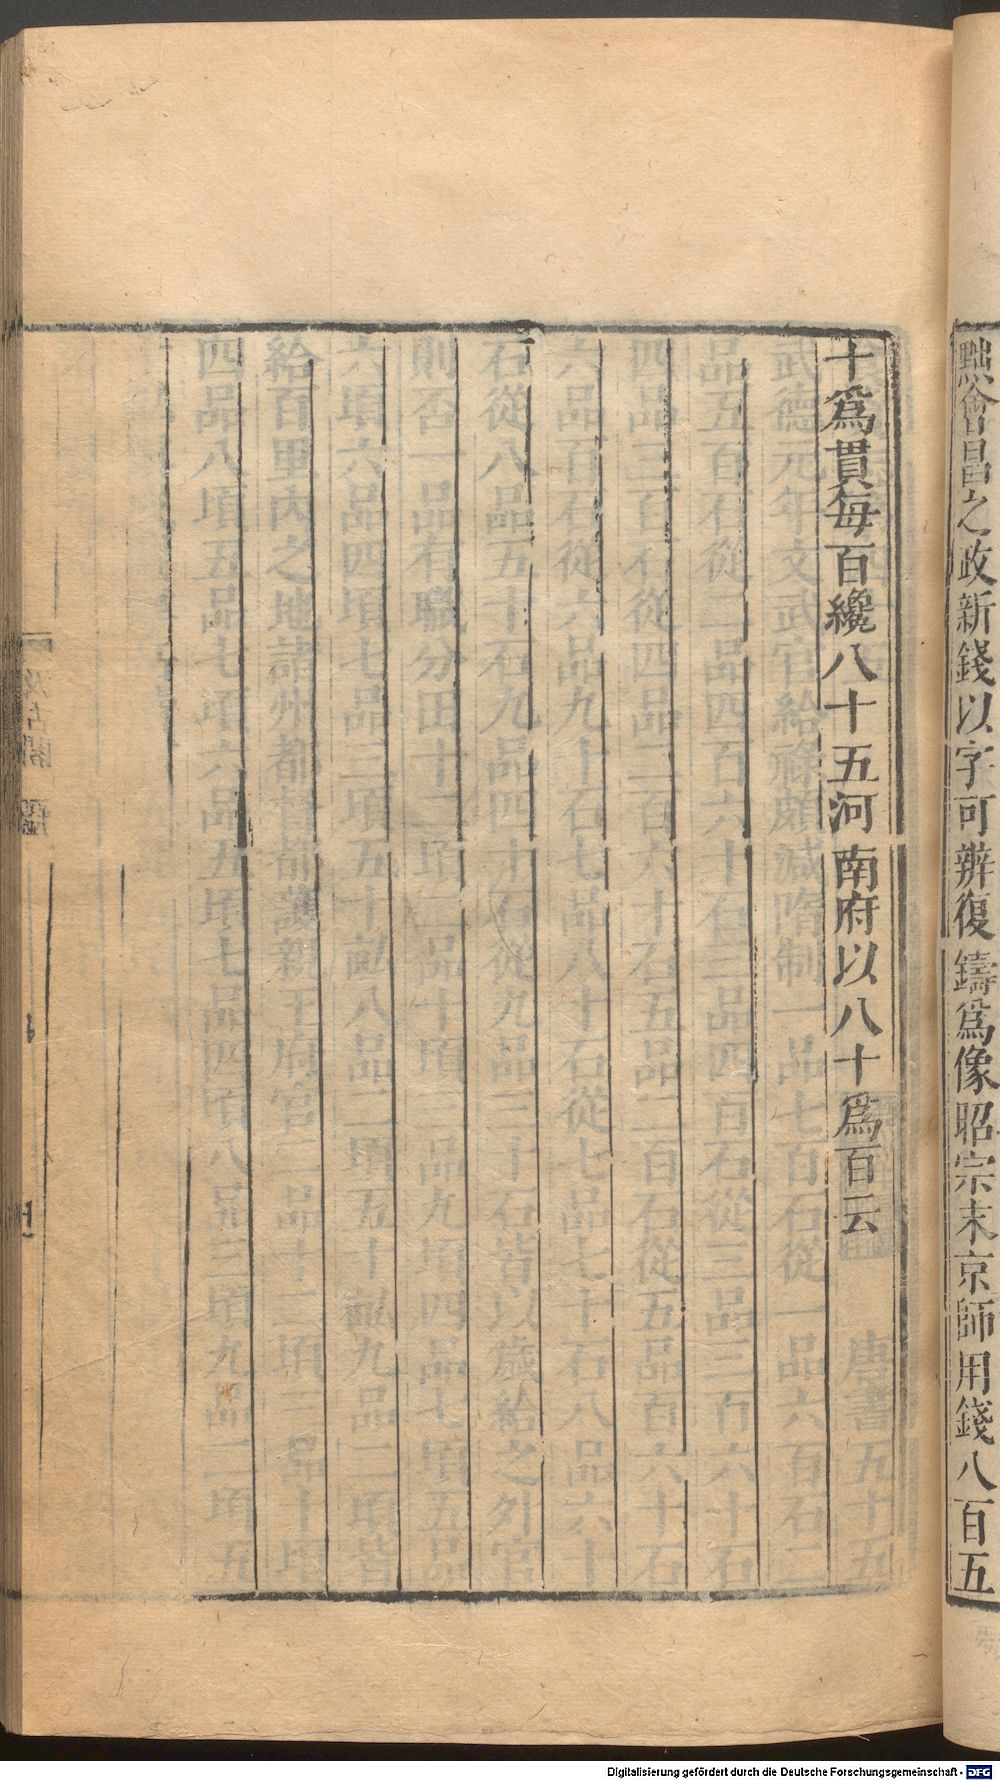 黜會昌之政新錢以字可辨復鑄爲像昭宗末京師用錢八百五
十爲貫每百纔八十五河南府以八十爲百云
唐書五十五
武德元年文武官給祿頗減隋制一品七百石從一品六百石二
品五百石從二品四百六十石三品四百石從三品三百六十石
四品三百石從四品二百六十石五品二百石從五品百六十石
六品百石從六品九十石七品八十石從七品七十石八品六十
石從八品五十石九品四十石從九品三十石皆以歲給之外官
則否一品有職分田十二頃二品十頃三品九頃四品七頃五品
六頃六品四頃七品三頃五十畝八品二頃五十畝九品二頃皆
給百里內之地諸州都督都護親王府官二品十二頃三品十頃
四品八頃五品七頃六品五頃七品四頃八品三頃九品二頃五
汲古閣
Digitalisierung gefördert durch die Deutsche Forschungsgemeinschaft - DFG